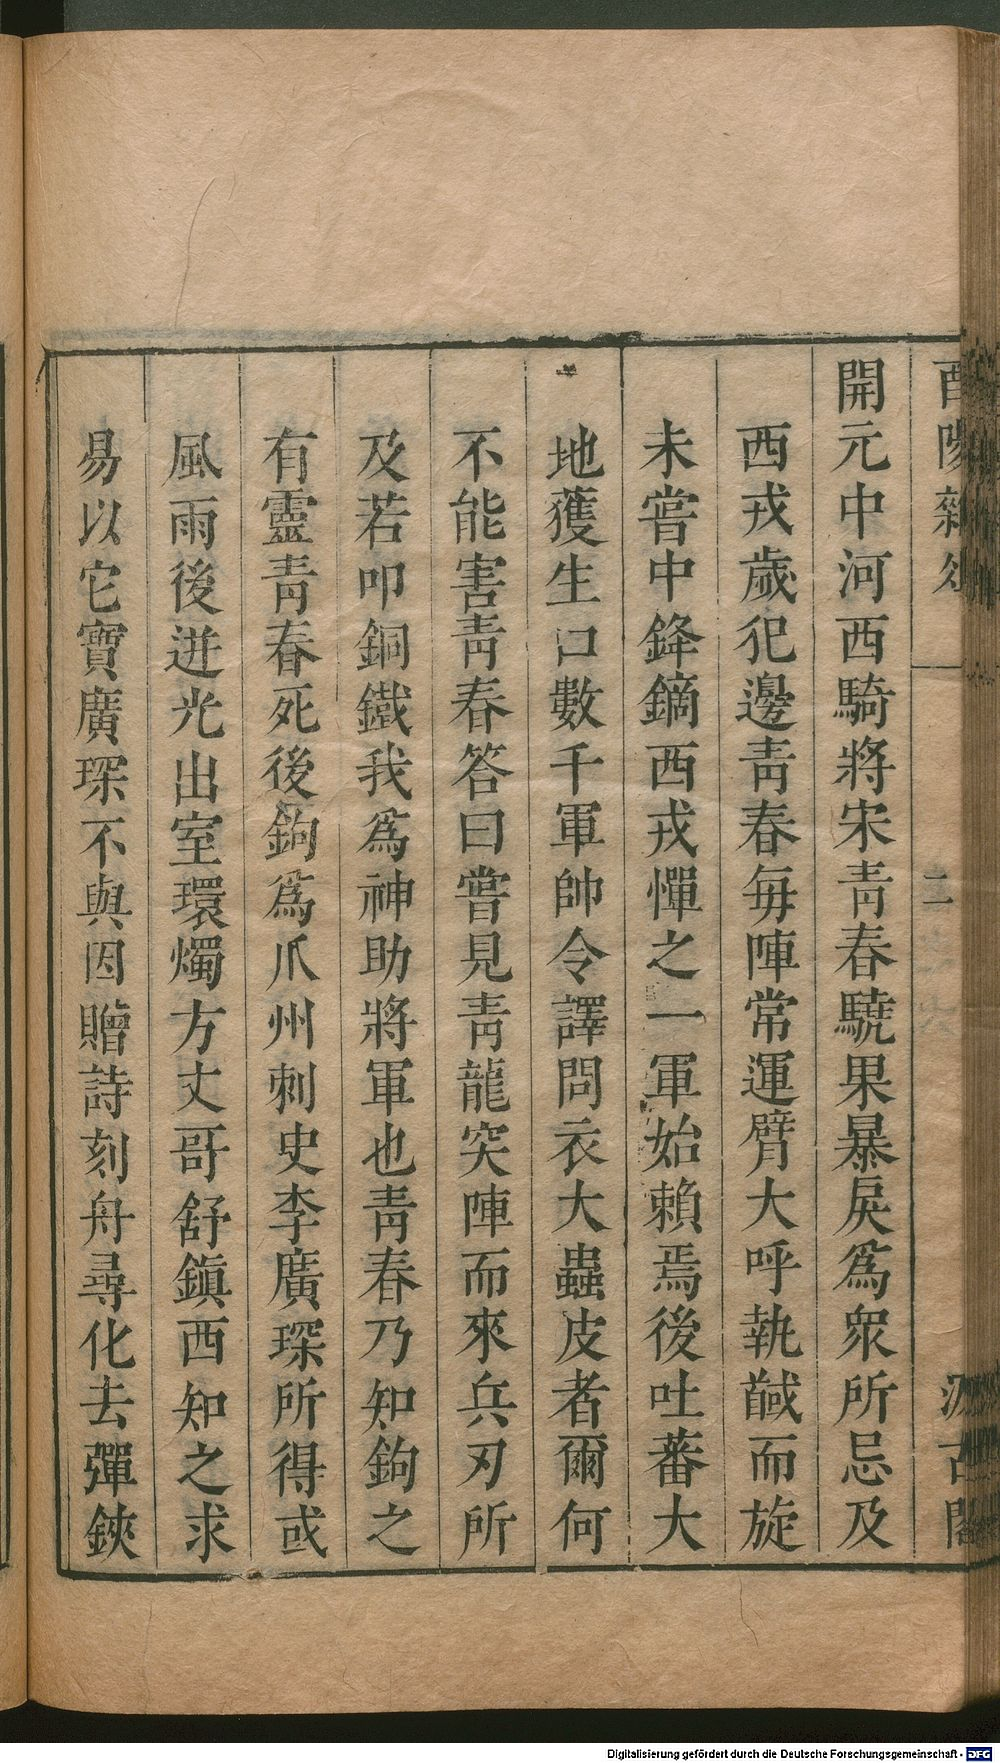 酉陽雜俎
二
汲古閣
開元中河西騎將宋青春驍果暴戾為衆所忌及
西戎歲犯邊青春每陣常運臂大呼執馘而旋
未嘗中鋒鏑西戎憚之一軍始賴焉後吐蕃大
地獲生口數千軍帥令譯問衣大蟲皮者爾何
不能害青春答曰嘗見青龍突陣而來兵刃所
及若叩銅鐵我為神助將軍也青春乃知鉤之
有靈青春死後鉤為爪州刺史李廣琛所得或
風雨後迸光出室環燭方丈哥舒鎮西知之求
易以它寶廣琛不與因贈詩刻舟尋化去彈鋏
Digitalisierung gefördert durch die Deutsche Forschungsgemeinschaft - DFG